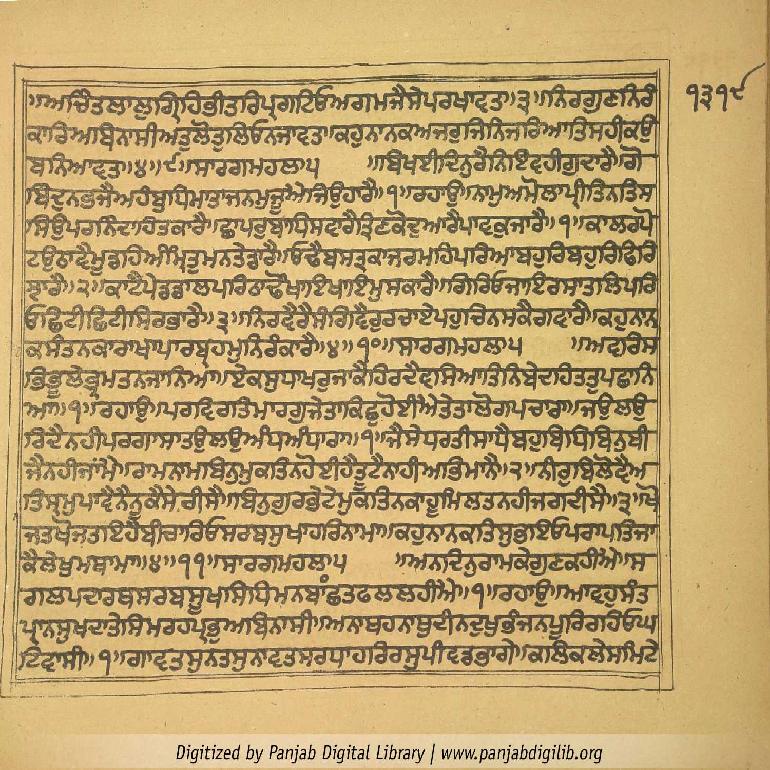 ੧੩੧੯
॥ਅਚਿੰਤਲਾਲੁਗ੍ਰਿਹਿਭੀਤਰਿਪ੍ਰਗਟਿਓਅਗਮਜੈਸੇਪਰਖਾਵਤਾ॥੩॥ਨਿਰਗੁਣਨਿਰੰ
ਕਾਰਿਅਬਿਨਾਸੀਅਤੁਲੋਤੁਲਿਓਨਜਾਵਤਾ॥ਕਹੁਨਾਨਕਅਜਰੁਜਿਨਿਜਰਿਆਤਿਸਹੀਕਉ
ਬਨਿਆਵਤਾ॥੪॥੯॥ਸਾਰਗਮਹਲਾ੫ ॥ਬਿਖਈਦਿਨੁਰੈਨਿਇਵਹੀਗੁਦਾਰੈ॥ਗੋ
ਬਿੰਦੁਨਭਜੈਅਹੰਬੁਧਿਮਾਤਾਜਨਮੁਜੂਐਜਿਉਹਾਰੈ॥੧॥ਰਹਾਉ॥ਨਾਮੁਅਮੋਲਾਪ੍ਰੀਤਿਨਤਿਸ
ਸਿਉਪਰਨਿੰਦਾਹਿਤਕਾਰੈ॥ਛਾਪਰੁਬਾਧਿਸਵਾਰੈਤ੍ਰਿਣਕੋਦੁਆਰੈਪਾਵਕੁਜਾਰੈ॥੧॥ਕਾਲਰਪੋ
ਟਉਠਾਵੈਮੂਡਹਿਅੰਮ੍ਰਿਤੁਮਨਤੇਡਾਰੈ॥ਓਢੈਬਸਤ੍ਰਕਾਜਰਮਹਿਪਰਿਆਬਹੁਰਿਬਹੁਰਿਫਿਰਿ
ਝਾਰੈ॥੨॥ਕਾਟੈਪੇਡੁਡਾਲਪਰਿਠਾਢੌਖਾਇਖਾਇਮੁਸਕਾਰੈ॥ਗਿਰਿਓਜਾਇਰਸਾਤਲਿਪਰਿ
ਓਛਿਟੀਛਿਟੀਸਿਰਭਾਰੈ॥੩॥ਨਿਰਵੈਰੈਸੰਗਿਵੈਰੁਰਚਾਏਪਹੁਚਿਨਸਕੈਗਵਾਰੈ॥ਕਹੁਨਾਨ
ਕਸੰਤਨਕਾਰਾਖਾਪਾਰਬ੍ਰਹਮੁਨਿਰੰਕਾਰੈ॥੪॥੧੦॥ਸਾਰਗਮਹਲਾ੫ ॥ਅਵਰਿਸ
ਭਿਭੂਲੇਭ੍ਰਮਤਨਜਾਨਿਆ॥ਏਕਸੁਧਾਖਰੁਜਾਕੈਹਿਰਦੈਵਸਿਆਤਿਨਿਬੇਦਹਿਤਤੁਪਛਾਨਿ
ਆ॥੧॥ਰਹਾਉ॥ਪਰਵਿਰਤਿਮਾਰਗੁਜੇਤਾਕਿਛੁਹੋਈਐਤੇਤਾਲੋਗਪਚਾਰਾ॥ਜਉਲਉ
ਰਿਦੈਨਹੀਪਰਗਾਸਾਤਉਲਉਅੰਧਅੰਧਾਰਾ॥੧॥ਜੈਸੇਧਰਤੀਸਾਧੈਬਹੁਬਿਧਿਬਿਨੁਬੀ
ਜੈਨਹੀਜਾਂਮੈ॥ਰਾਮਨਾਮਬਿਨੁਮੁਕਤਿਨਹੋਈਹੈਤੁਟੈਨਾਹੀਅਭਿਮਾਨੈ॥੨॥ਨੀਰੁਬਿਲੋਵੈਅ
ਤਿਸ੍ਰਮੁਪਾਵੈਨੈਨੂਕੈਸੇਰੀਸੈ॥ਬਿਨੁਗੁਰਭੇਟੇਮੁਕਤਿਨਕਾਹੂਮਿਲਤਨਹੀਜਗਦੀਸੈ॥੩॥ਖੋ
ਜਤਖੋਜਤਇਹੈਬੀਚਾਰਿਓਸਰਬਸੁਖਾਹਰਿਨਾਮਾ॥ਕਹੁਨਾਨਕਤਿਸੁਭਇਓਪਰਾਪਤਿਜਾ
ਕੈਲੇਖੁਮਥਾਮਾ॥੪॥੧੧॥ਸਾਰਗਮਹਲਾ੫ ॥ਅਨਦਿਨੁਰਾਮਕੇਗੁਣਕਹੀਐ॥ਸ
ਗਲਪਦਾਰਥਸਰਬਸੂਖਸਿਧਿਮਨਬਾਂਛਤਫਲਲਹੀਐ॥੧॥ਰਹਾਉ॥ਆਵਹੁਸੰਤ
ਪ੍ਰਾਨਸੁਖਦਾਤੇਸਿਮਰਹਪ੍ਰਭੁਅਬਿਨਾਸੀ॥ਅਨਾਥਹਨਾਥੁਦੀਨਦੁਖਭੰਜਨਪੂਰਿਰਹਿਓਘ
ਟਿਵਾਸੀ॥੧॥ਗਾਵਤਸੁਨਤਸੁਨਾਵਤਸਰਧਾਹਰਿਰਸੁਪੀਵਡਭਾਗੇ॥ਕਲਿਕਲੇਸਮਿਟੇ
Digitized by Panjab Digital Library | www.panjabdigilib.org